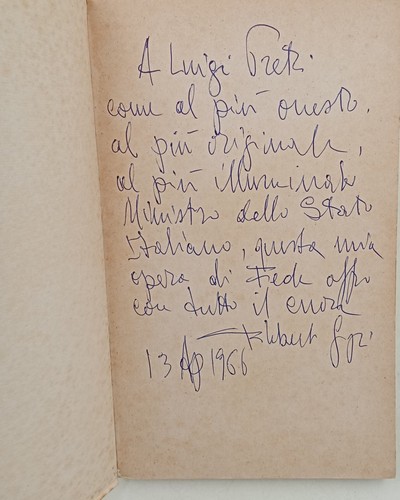 A Luigi Preti
come al più onesto,
al più originale,
al più illuminato
Ministro dello Stato
Italiano, questa mia
opera di Fede offro
con tutto il cuore
13 Ap 1966